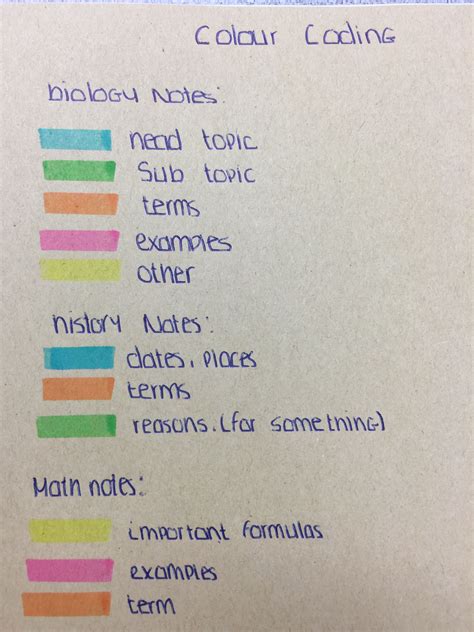 Colour Coding
biology Notes:
head topic
Sub topic
terms
examples
other
history Notes:
dates, places
terms
reasons. (for something)
Math notes:
important formulas
examples
term